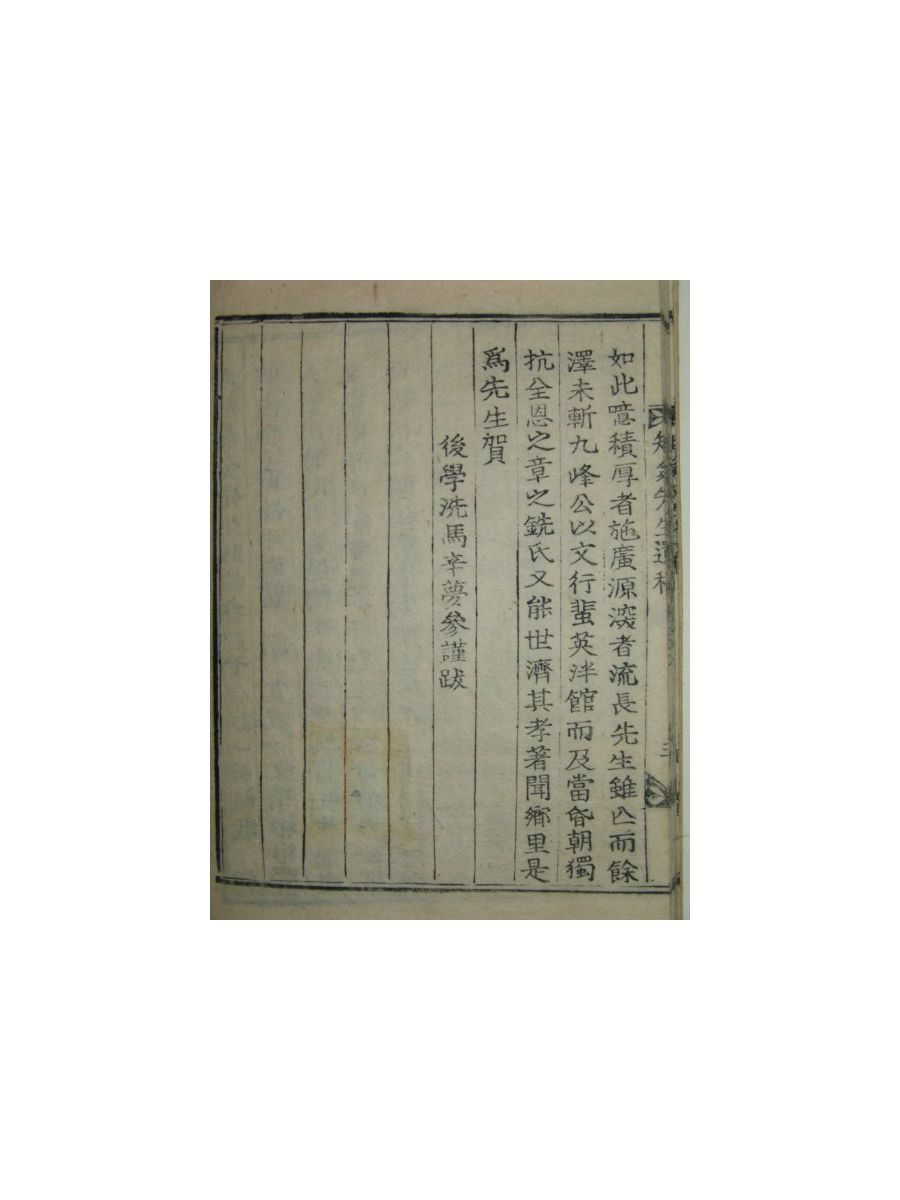 如此噫積厚者施廣源深者流長先生雖亾而餘
澤未斬九峰公以文行蜚英泮館而及當昏朝獨
抗全恩之章之銑氏又能世濟其孝著聞鄉里是
爲先生賀
後學洗馬辛夢參謹跋
先生遺稿
三